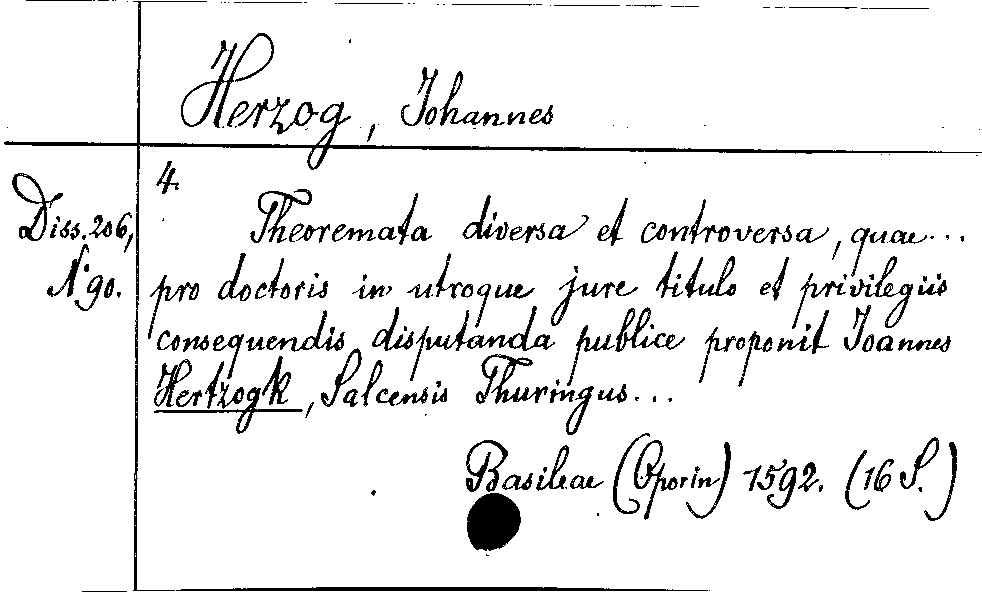 Herzog, Johannes
4.
Diss. 206,
N° 90.
Theoremata diversa et controversa, quae...
pro doctoris in utroque jure titulo et privilegiis
consequendis disputanda publice proponit Joannes
Hertzogk, Salcensis Thuringus...
Basileae (Oporin) 1592. (16 S.)